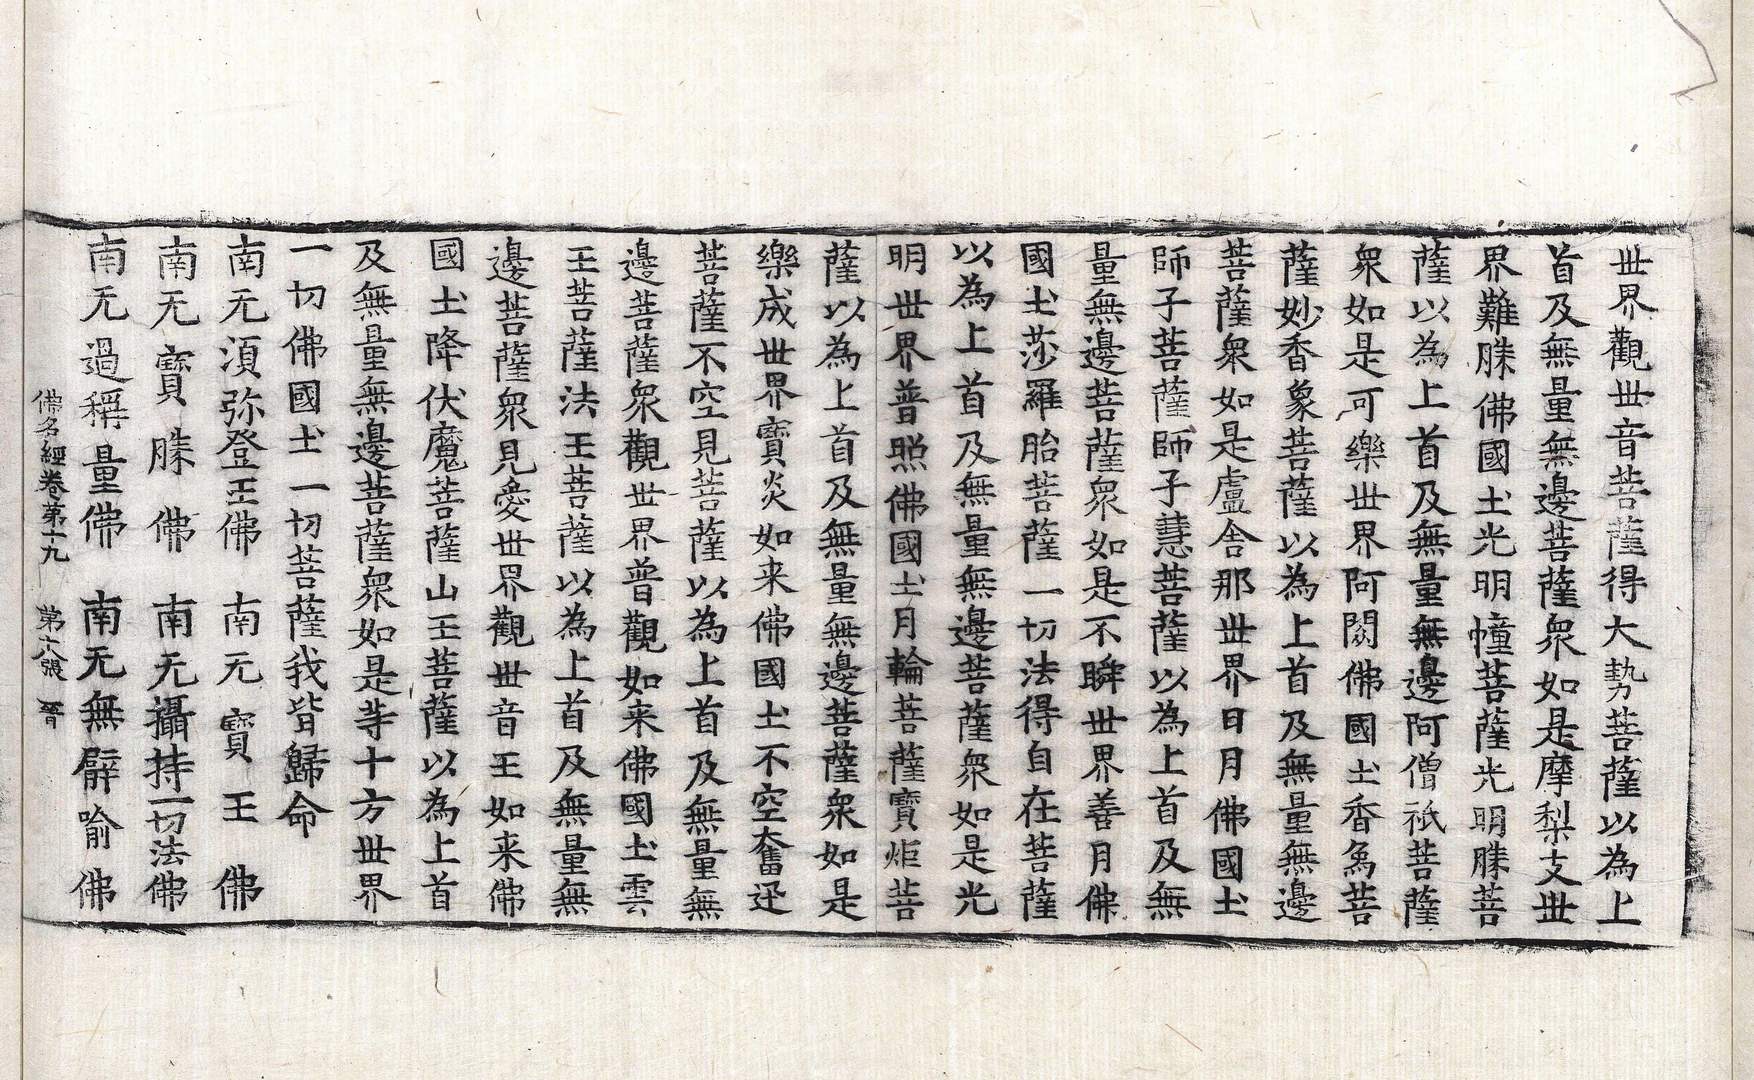 世界觀世音菩薩得大勢菩薩以為上
首及無量無邊菩薩衆如是摩梨支世
界難勝佛國土光明幢菩薩光明勝菩
薩以為上首及無量無邊阿僧祇菩薩
衆如是可樂世界阿閦佛國土香象菩
薩妙香象菩薩以為上首及無量無邊
菩薩衆如是盧舍那世界日月佛國土
師子菩薩師子慧菩薩以為上首及無
量無邊菩薩衆如是不瞬世界善月佛
國土莎羅胎菩薩一切法得自在菩薩
以為上首及無量無邊菩薩衆如是光
明世界普照佛國土月輪菩薩寶炬菩
薩以為上首及無量無邊菩薩衆如是
樂成世界寶炎如来佛國土不空奮迅
菩薩不空見菩薩以為上首及無量無
邊菩薩衆觀世界普觀如来佛國土雲
王菩薩法王菩薩以為上首及無量無
邊菩薩衆見愛世界觀世音王如来佛
國土降伏魔菩薩山王菩薩以為上首
及無量無邊菩薩衆如是等十方世界
一切佛國土一切菩薩我皆歸命
南无湏弥登王佛 南无寶王佛
南无寶勝佛 南无攝持一切法佛
南无過稱量佛 南无無辟喻佛
佛名經卷第十九 第六張 晉